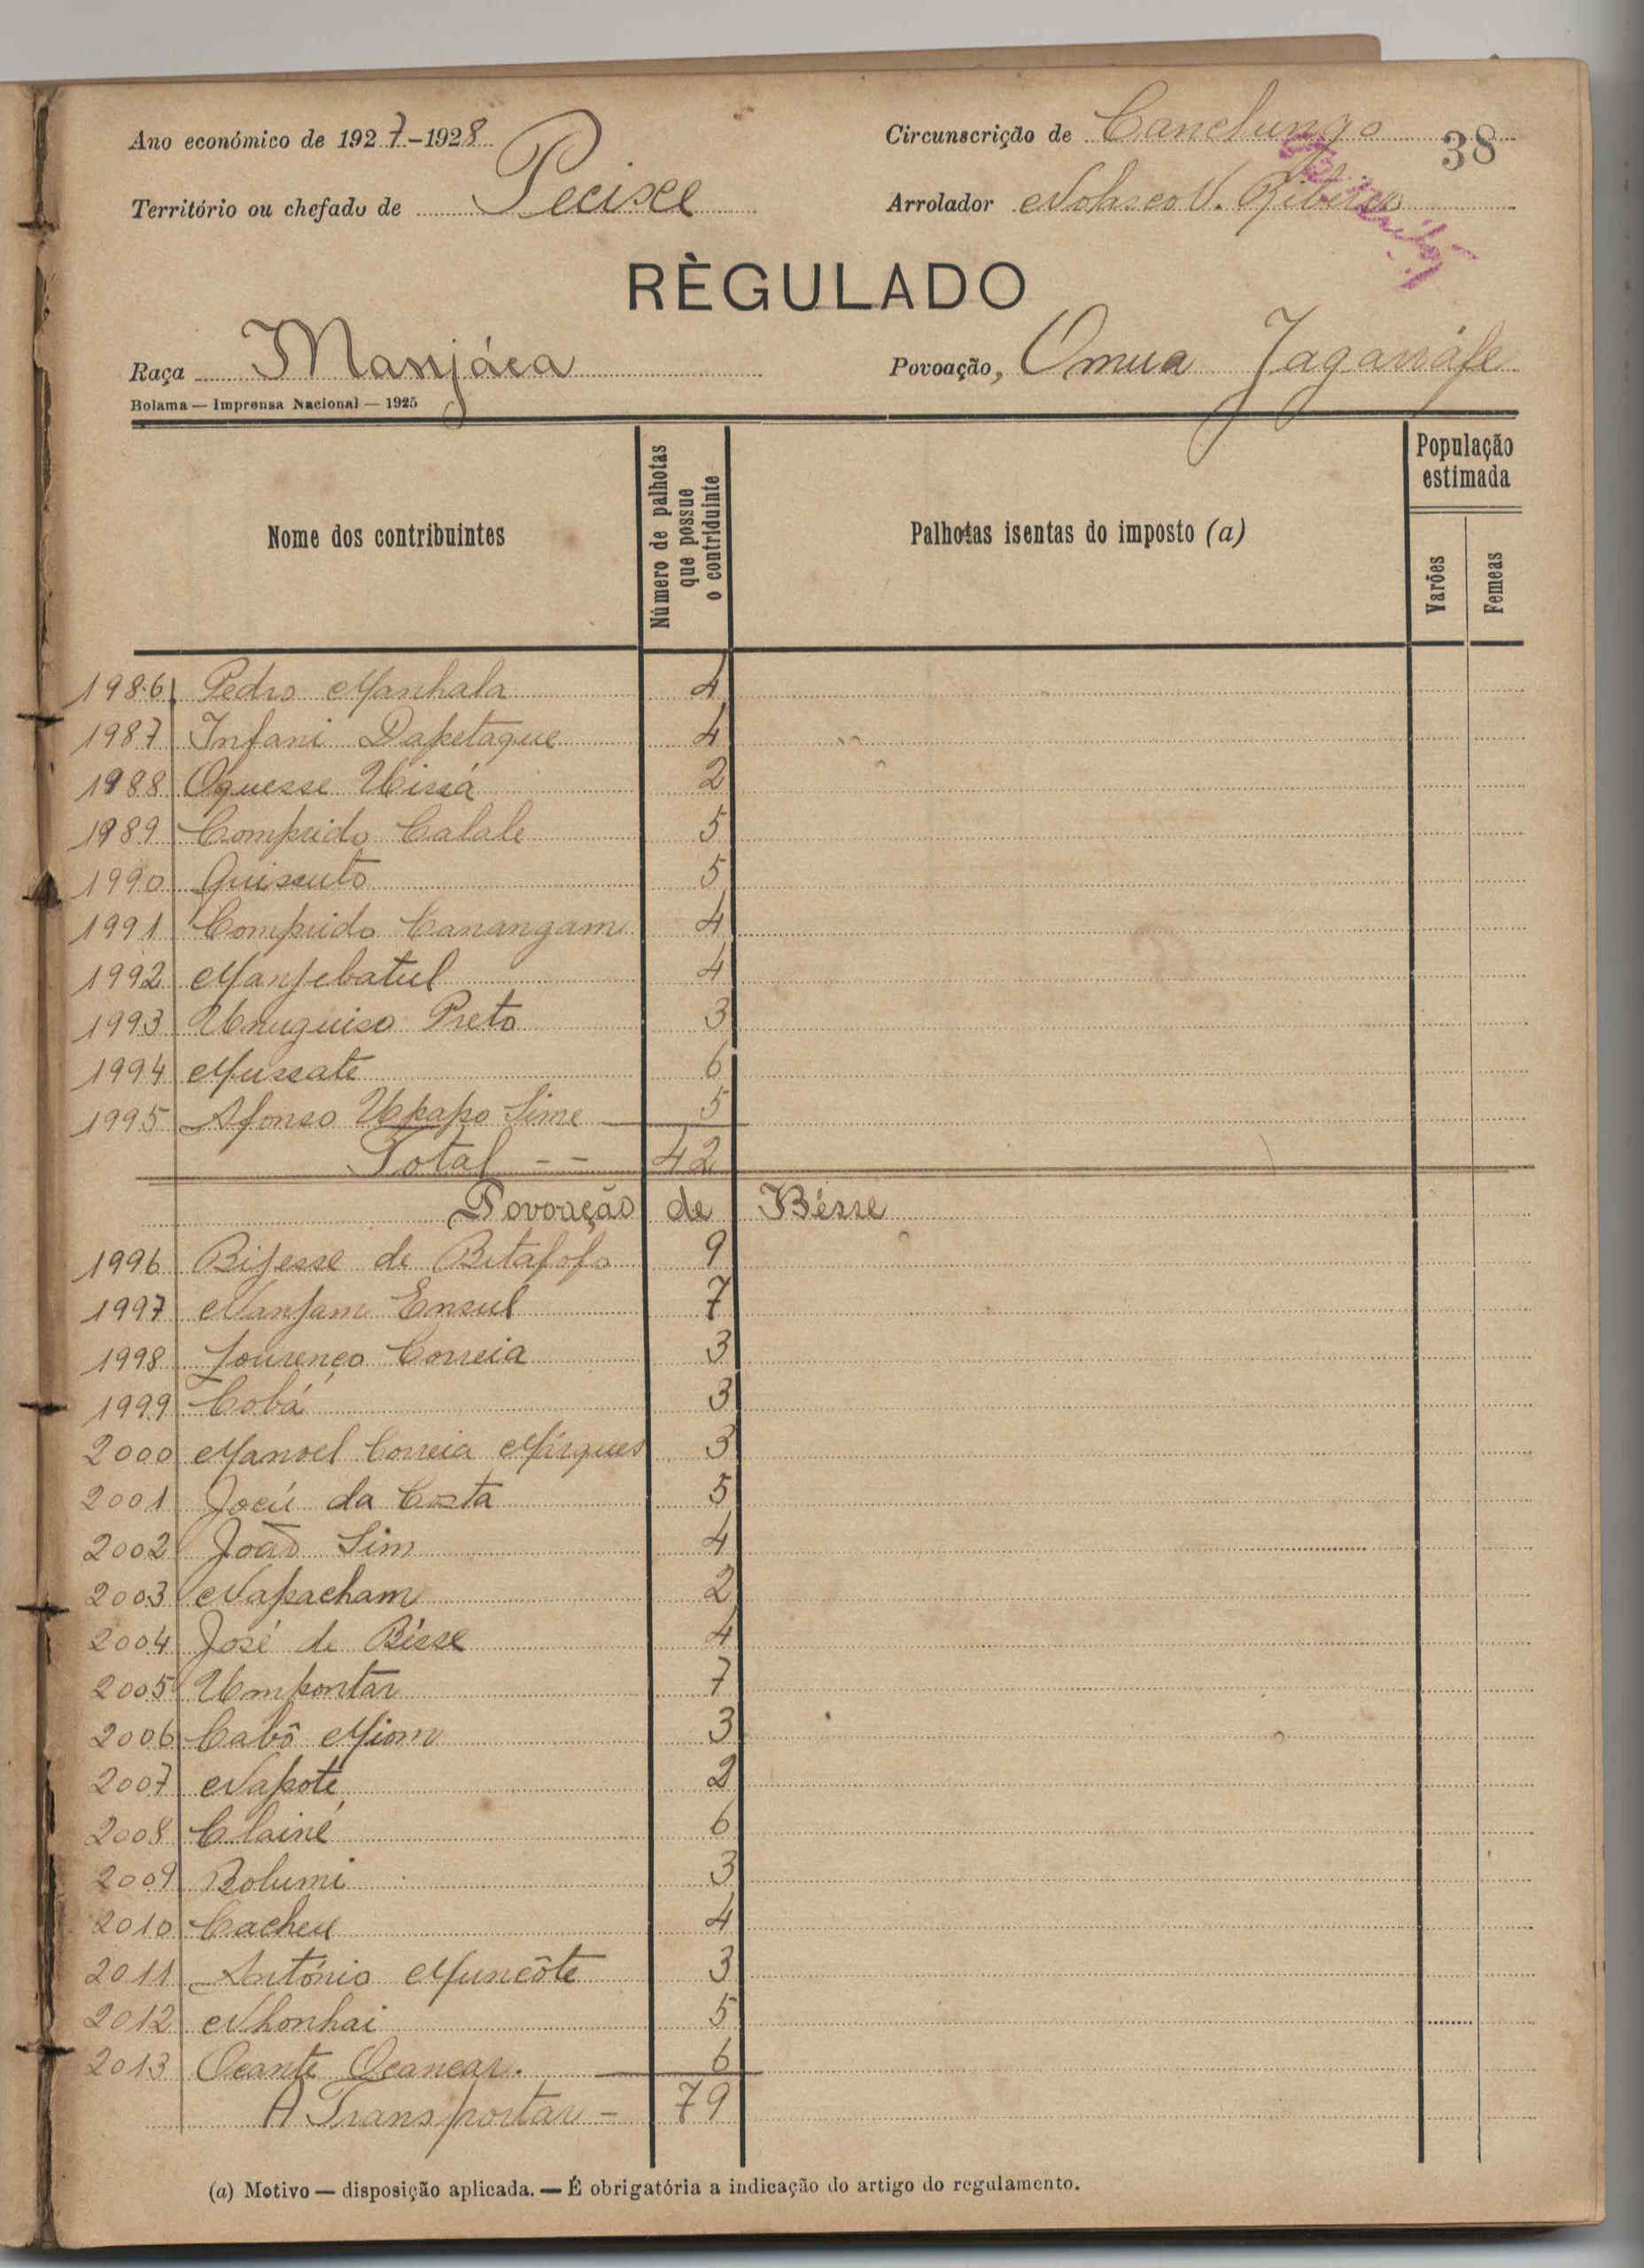 Ano económico de 1927-1928
Circunscrição de Canchungo
38
Território ou chefado de Pecixe
Arrolador V. Ribeiro
RÈGULADO
Raça Manjáca
Povoação, Omua Jaganáfe
Bolama — Imprensa Nacional — 1925
Nome dos contribuintes
Número de palhotas que possue o contriduinte
Palhotas isentas do imposto (a)
População estimada
Varões
Femeas
1986 Pedro Manhala 4
1987 Infani Dapetaque 4
1988 Oquesse Uissá 2
1989 Comprido Calale 5
1990 Quissuto 5
1991 Comprido Canangam 4
1992 Manjebatul 4
1993 Unuguiso Preto 3
1994 Mussate 6
1995 Afonso Upapo Sime 5
Total -- 42
Povoação de Bésse
1996 Bijesse de Betafofo 9
1997 Nanjam Ensul 7
1998 Lourenço Correia 3
1999 Cobá 3
2000 Manoel Correia Márques 3
2001 Jocú da Costa 5
2002 João Sim 4
2003 Napacham 2
2004 José de Bésse 4
2005 Umpontar 7
2006 Cabô Miom 3
2007 Napoté 2
2008 Clainé 6
2009 Bolumi 3
2010 Cacheu 4
2011 António Muncôte 3
2012 Nhonhai 5
2013 Ocante Ocancar. 6
A Transportar - 79
(a) Motivo — disposição aplicada. — É obrigatória a indicação do artigo do regulamento.